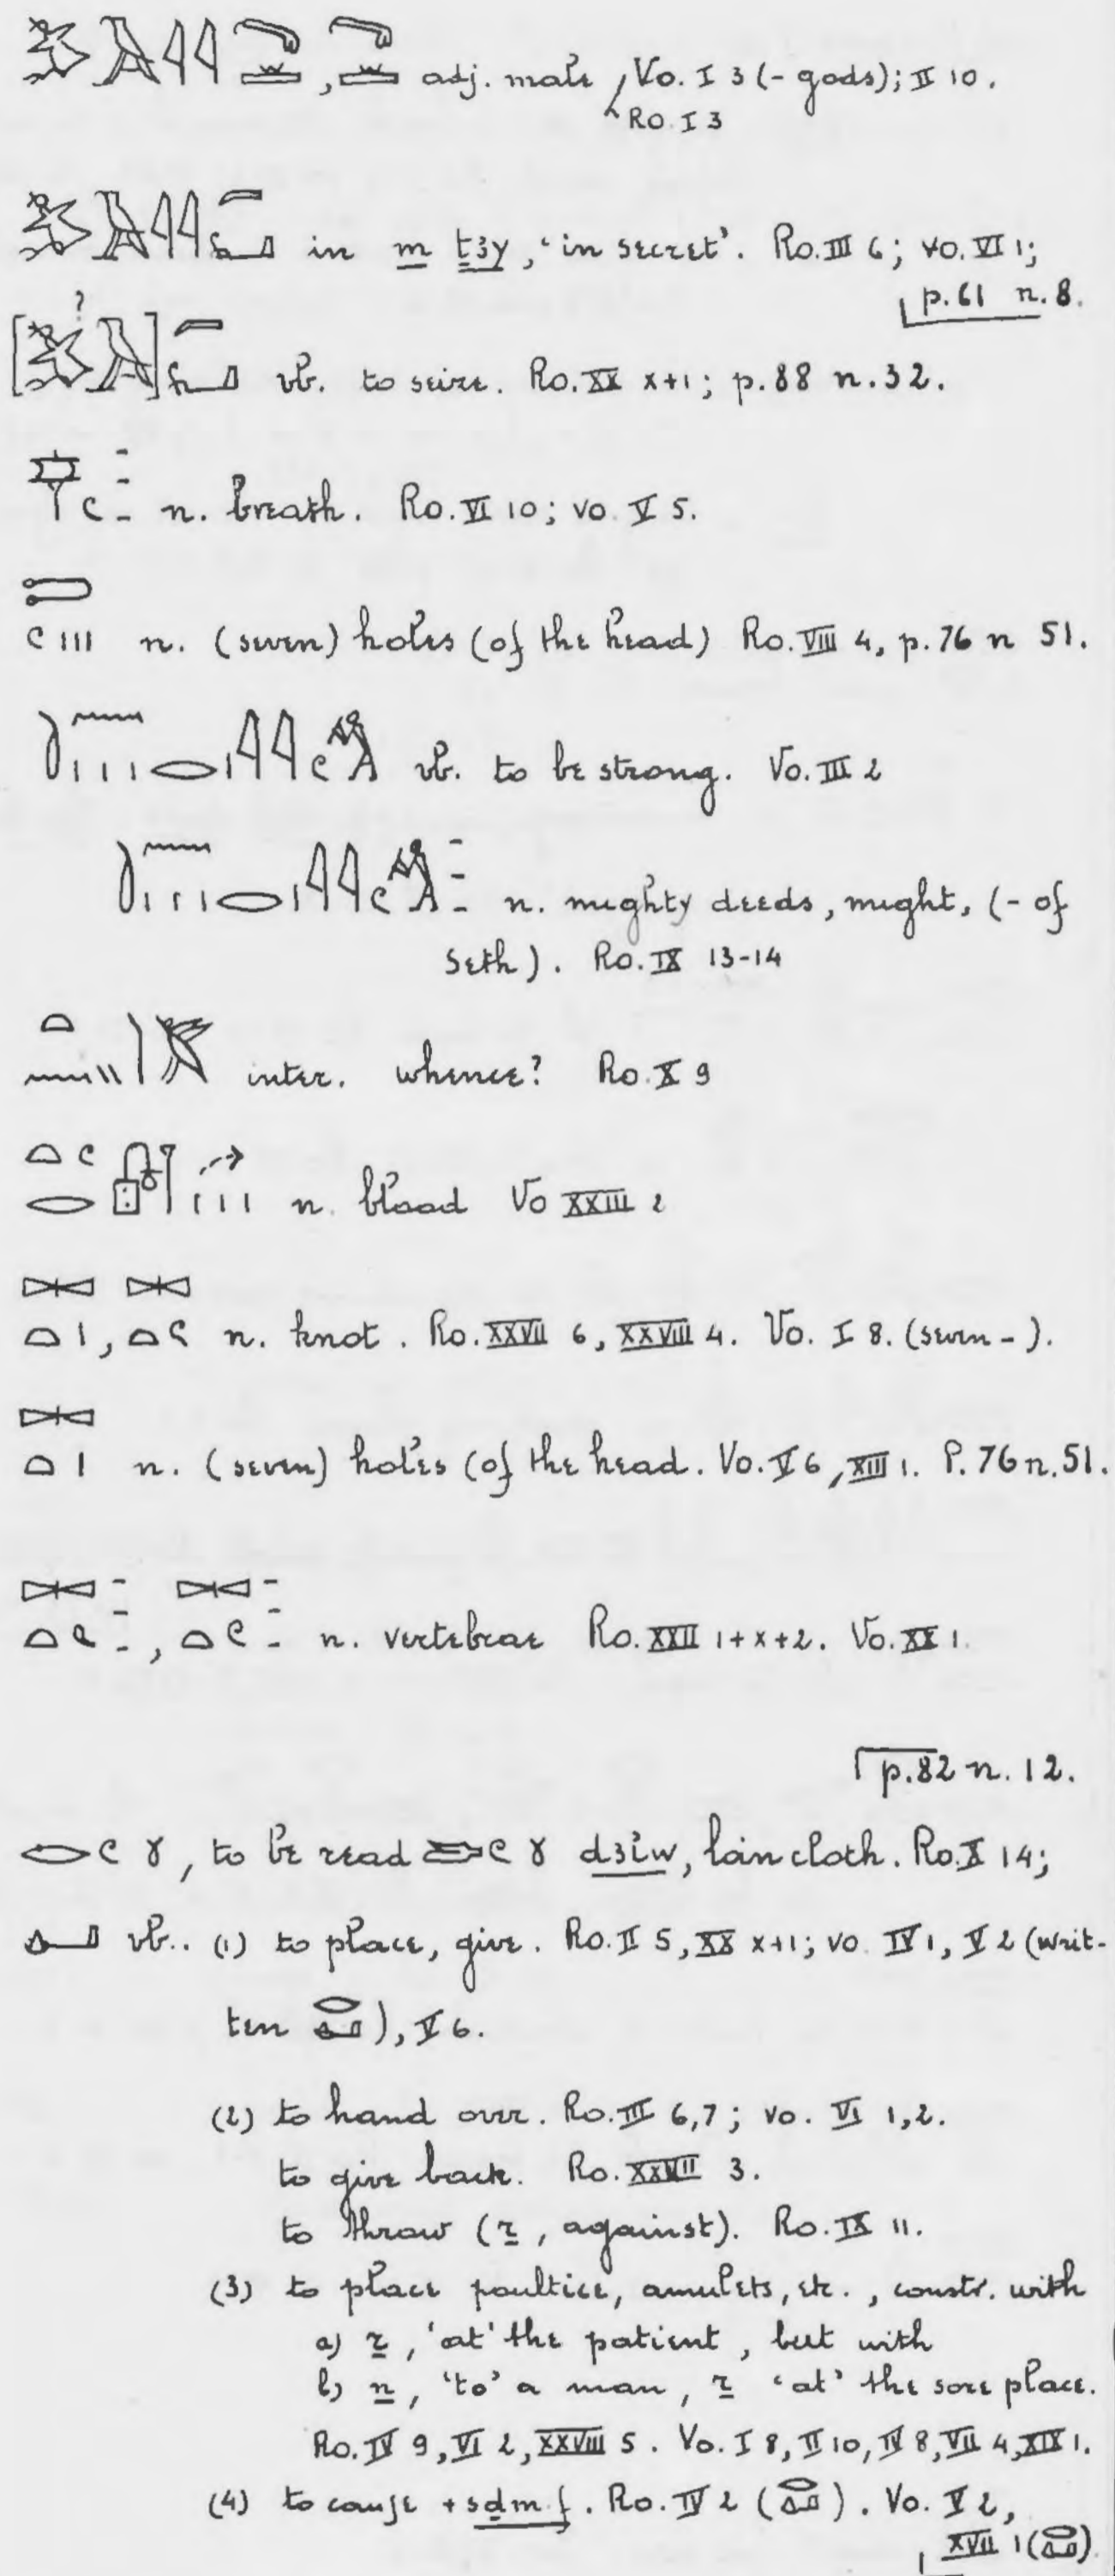 , adj. male, Vo. I 3 (- gods); II 10.
Ro. I 3
in m ṯ3y, 'in secret'. Ro. III 6; vo. VI 1;
p. 61 n. 8.
[ ? ] vb. to seize. Ro. XX x+1; p. 88 n. 32.
n. breath. Ro. VI 10; vo. V 5.
n. (seven) holes (of the head) Ro. VIII 4, p. 76 n 51.
vb. to be strong. Vo. III 2
n. mighty deeds, might, (- of
Seth). Ro. IX 13-14
inter. whence? Ro. X 9
n. blood Vo XXIII 2
, n. knot. Ro. XXVII 6, XXVIII 4. Vo. I 8. (seven -).
n. (seven) holes (of the head. Vo. V 6, XIII 1. P. 76 n. 51.
, n. vertebrae Ro. XXII 1+x+2. Vo. XX 1.
p. 82 n. 12.
, to be read d3iw, loin cloth. Ro. X 14;
vb.. (1) to place, give. Ro. II 5, XX x+1; vo. IV 1, V 2 (writ-
ten ), V 6.
(2) to hand over. Ro. III 6,7; vo. VI 1,2.
to give back. Ro. XXVII 3.
to throw (r, against). Ro. IX 11.
(3) to place poultice, amulets, etc., constr. with
a) r, 'at' the patient, but with
b) n, 'to' a man, r 'at' the sore place.
Ro. IV 9, VI 2, XXVIII 5. Vo. I 8, II 10, IV 8, VII 4, XIX 1.
(4) to cause + sḏm.f. Ro. IV 2 ( ). Vo. V 2,
XVII 1 ( )